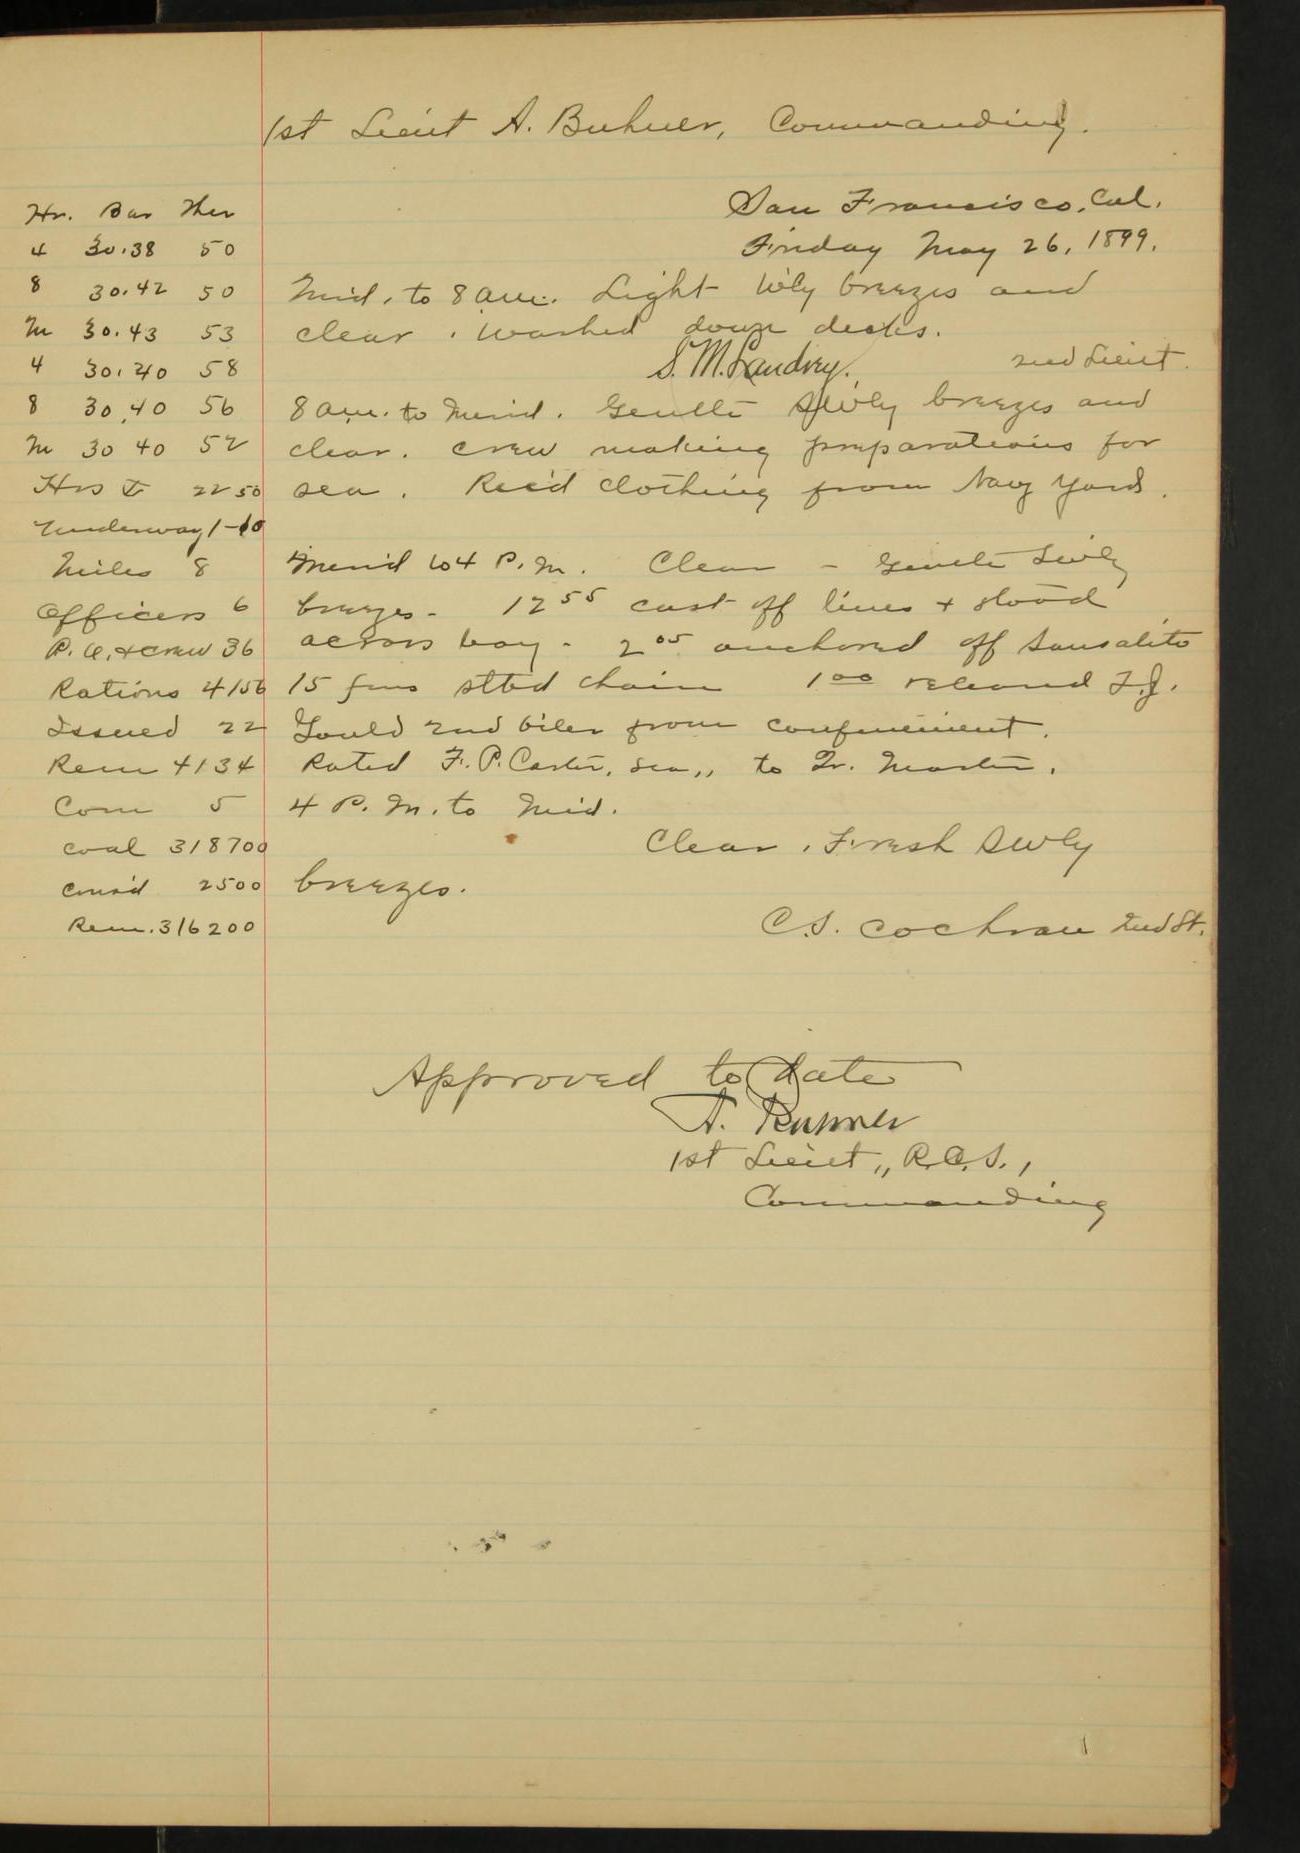 1st Lieut A. Buhner, Commanding.
San Francisco, Cal.
Friday May 26, 1899.
Hr. Bar Ther
4 30.38 50
8 30.42 50
M 30.43 53
4 30.40 58
8 30.40 56
M 30 40 52
Hrs 22 50
Underway 1-10
Miles 8
Officers 6
P.O. & Crew 36
Rations 4156
Issued 22
Rem 4134
Com 5
Coal 318700
Cons'd 2500
Rem. 316200
Mid. to 8 am. Light Wly breezes and
clear. Washed down decks.
S. M. Landrey. 2nd Lieut.
8 am. to Merid. Gentle SWly breezes and
clear. Crew making preparations for
sea. Rec'd clothing from Navy Yard.
Merid to 4 P.M. Clear - Gentle SWly
breezes - 12 55 cast off lines & stood
across bay - 2 05 anchored off Sausalito
15 fms stbd chain 1 00 released F.J.
Gould 2nd Oiler from confinement.
Rated F. P. Carter, Sea,, to Qr. Master.
4 P.M. to Mid.
Clear, Fresh SWly
breezes.
C.S. Cochran 2nd Lt.
Approved to date
A. Buhner
1st Lieut,, R.C.S.,
Commanding